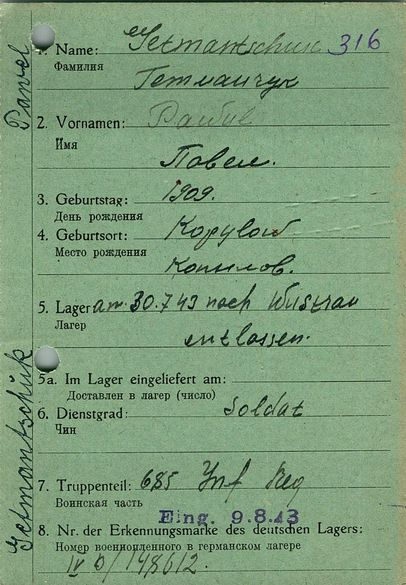 Pavel
Getmantschuk
1. Name: Getmantschuk 316
Фамилия
Гетманчук
2. Vornamen: Pawel
Имя
Павел.
3. Geburtstag: 1909.
День рождения
4. Geburtsort: Kopylow
Место рождения
Копилов.
5. Lager am 30.7.43 nach Wustrau
Лагер
entlassen.
5a. Im Lager eingeliefert am:
Доставлен в лагер (число)
6. Dienstgrad: Soldat
Чин
7. Truppenteil: 685 Inf Reg
Воинская часть
Eing. 9.8.43
8. Nr. der Erkennungsmarke des deutschen Lagers:
Номер военнопленного в германском лагере
IV b/